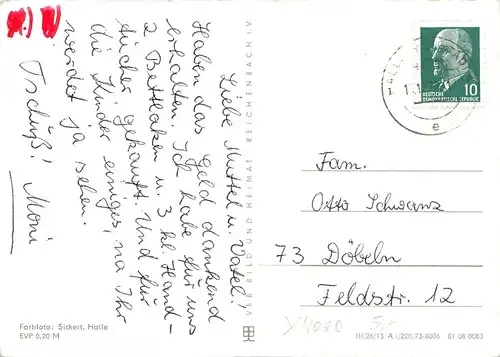 Liebe Muttel u. Vatel!
Haben das Geld dankend
erhalten. Ich habe für uns
2 Bettlaken u. 3 kl. Hand-
tücher gekauft. Und für
die Kinder einiges, na Ihr
werdet ja sehen.
Tschüß! Moni
Farbfoto: Sickert, Halle
EVP 0,20 M
VEB BILD UND HEIMAT REICHENBACH I. V.
DEUTSCHE
DEMOKRATISCHE REPUBLIK
10
e
Fam.
Otto Schwanz
73 Döbeln
Feldstr. 12
Y4020
5,-
III/26/13 A 1/220/73-6006 01 08 0083